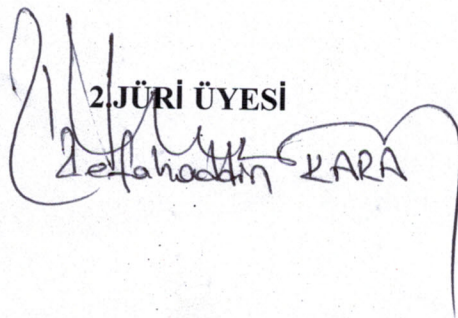 2.JÜRİ ÜYESİ
Selahaddin KARA